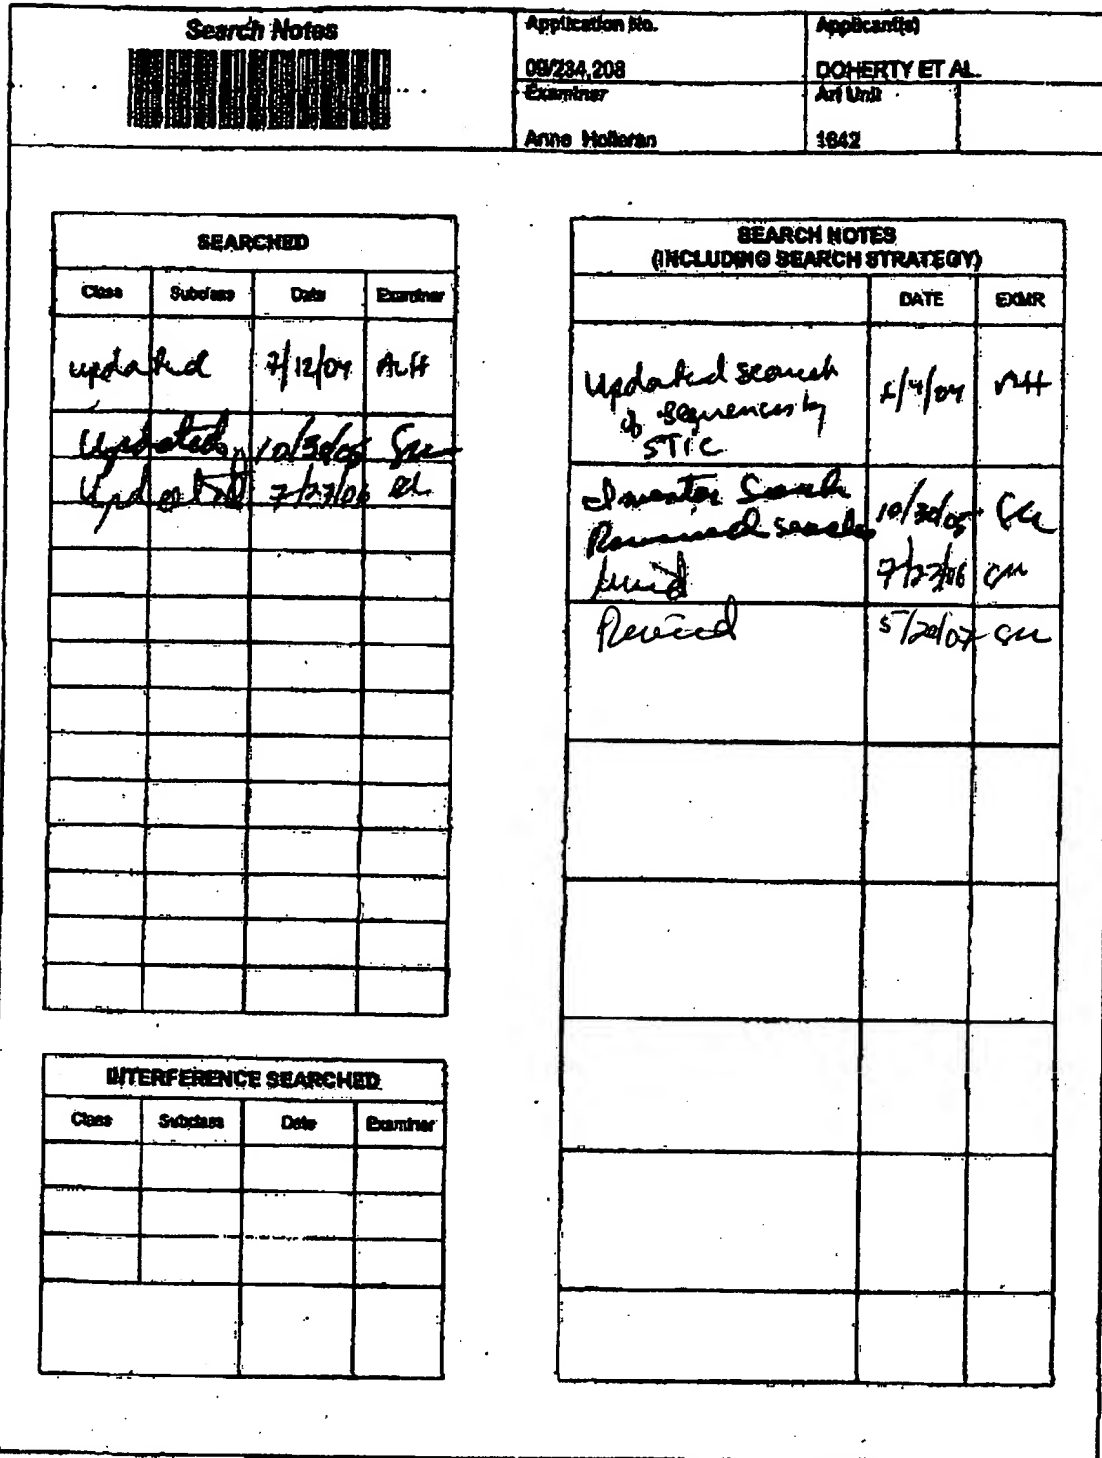 Search Notes
Application No.
Applicant(s)
09/234,208
DOHERTY ET AL.
Examiner
Art Unit
Anne Holleran
1642
SEARCHED
Class Subclass Date Examiner
updated 7/12/04 ALH
Updated 10/30/05
Updated 7/27/06
SEARCH NOTES
(INCLUDING SEARCH STRATEGY)
DATE EXMR
Updated search
of sequences by
STIC
Inventor Search 10/30/05
search
7/23/06
5/20/07
INTERFERENCE SEARCHED
Class Subclass Date Examiner